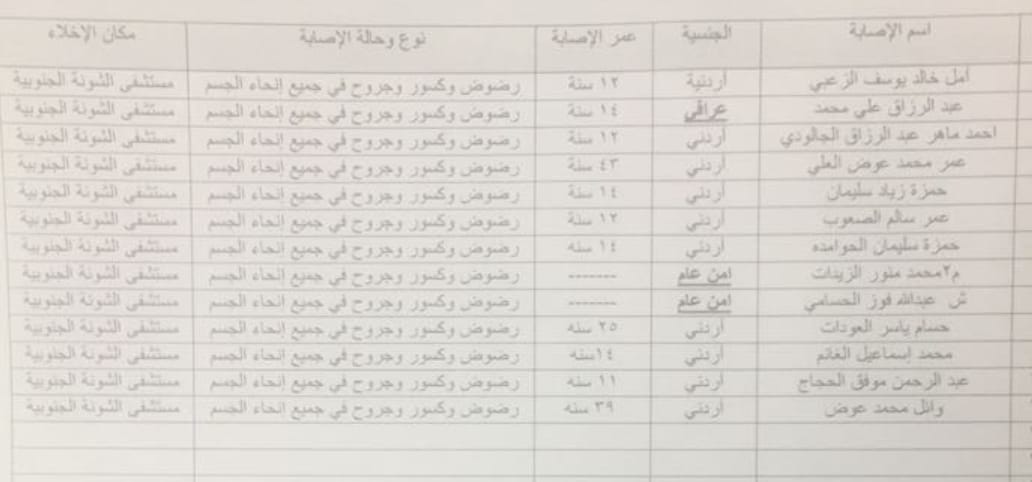 اسم الإصابة الجنسية عمر الإصابة نوع وحالة الإصابة مكان الإخلاء
أمل خالد يوسف الزعبي أردنية ١٢ سنة رضوض وكسور وجروح في جميع إنحاء الجسم مستشفى الشونة الجنوبية
عبد الرزاق علي محمد عراقي ١٤ سنة رضوض وكسور وجروح في جميع إنحاء الجسم مستشفى الشونة الجنوبية
احمد ماهر عبد الرزاق الجالودي أردني ١٢ سنة رضوض وكسور وجروح في جميع إنحاء الجسم مستشفى الشونة الجنوبية
عمر محمد عوض العلي أردني ٤٣ سنة رضوض وكسور وجروح في جميع إنحاء الجسم مستشفى الشونة الجنوبية
حمزة زياد سليمان أردني ١٤ سنة رضوض وكسور وجروح في جميع إنحاء الجسم مستشفى الشونة الجنوبية
عمر سالم الصعوب أردني ١٢ سنة رضوض وكسور وجروح في جميع إنحاء الجسم مستشفى الشونة الجنوبية
حمزة سليمان الحوامده أردني ١٤ سنه رضوض وكسور وجروح في جميع إنحاء الجسم مستشفى الشونة الجنوبية
م٢محمد منور الزينات امن عام ------- رضوض وكسور وجروح في جميع إنحاء الجسم مستشفى الشونة الجنوبية
ش عبدالله فوز الحسامي امن عام ------- رضوض وكسور وجروح في جميع إنحاء الجسم مستشفى الشونة الجنوبية
حسام ياسر العودات أردني ٢٥ سنه رضوض وكسور وجروح في جميع إنحاء الجسم مستشفى الشونة الجنوبية
محمد إسماعيل الغانم أردني ١٤سنه رضوض وكسور وجروح في جميع إنحاء الجسم مستشفى الشونة الجنوبية
عبد الرحمن موفق الحجاج أردني ١١ سنه رضوض وكسور وجروح في جميع إنحاء الجسم مستشفى الشونة الجنوبية
وائل محمد عوض أردني ٣٩ سنه رضوض وكسور وجروح في جميع إنحاء الجسم مستشفى الشونة الجنوبية